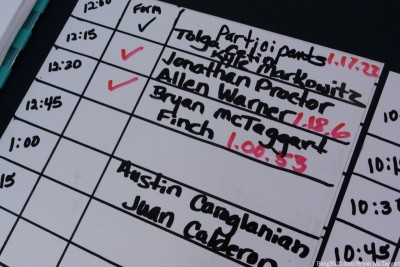 12:00 Form Participants
12:15 ✓ Tolga 1.17.22
Kyle Markowitz
12:30 ✓ Jonathan Proctor
Allen Warner 1.18.6
12:45 ✓ Bryan McTaggart
Finch 1.00.53
1:00
15 Austin Canglanian
Juan Calderon
10
10:1
10:3
10:45